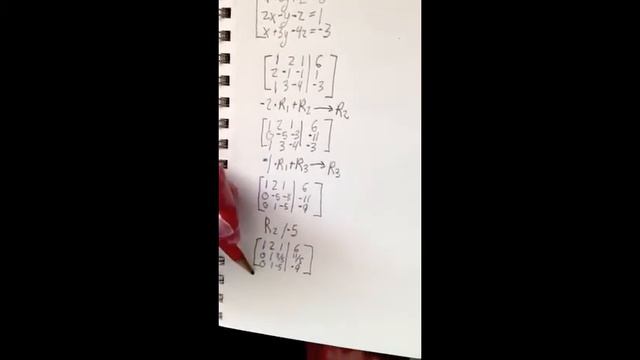 2x-y-z=1
x+3y-4z=-3
1 2 1 | 6
2 -1 -1 | 1
1 3 -4 | -3
-2·R₁+R₂→R₂
1 2 1 | 6
0 -5 -3 | -11
1 3 -4 | -3
-1·R₁+R₃→R₃
1 2 1 | 6
0 -5 -3 | -11
0 1 -5 | -9
R₂/-5
1 2 1 | 6
0 1 3/5 | 11/5
0 1 -5 | -9